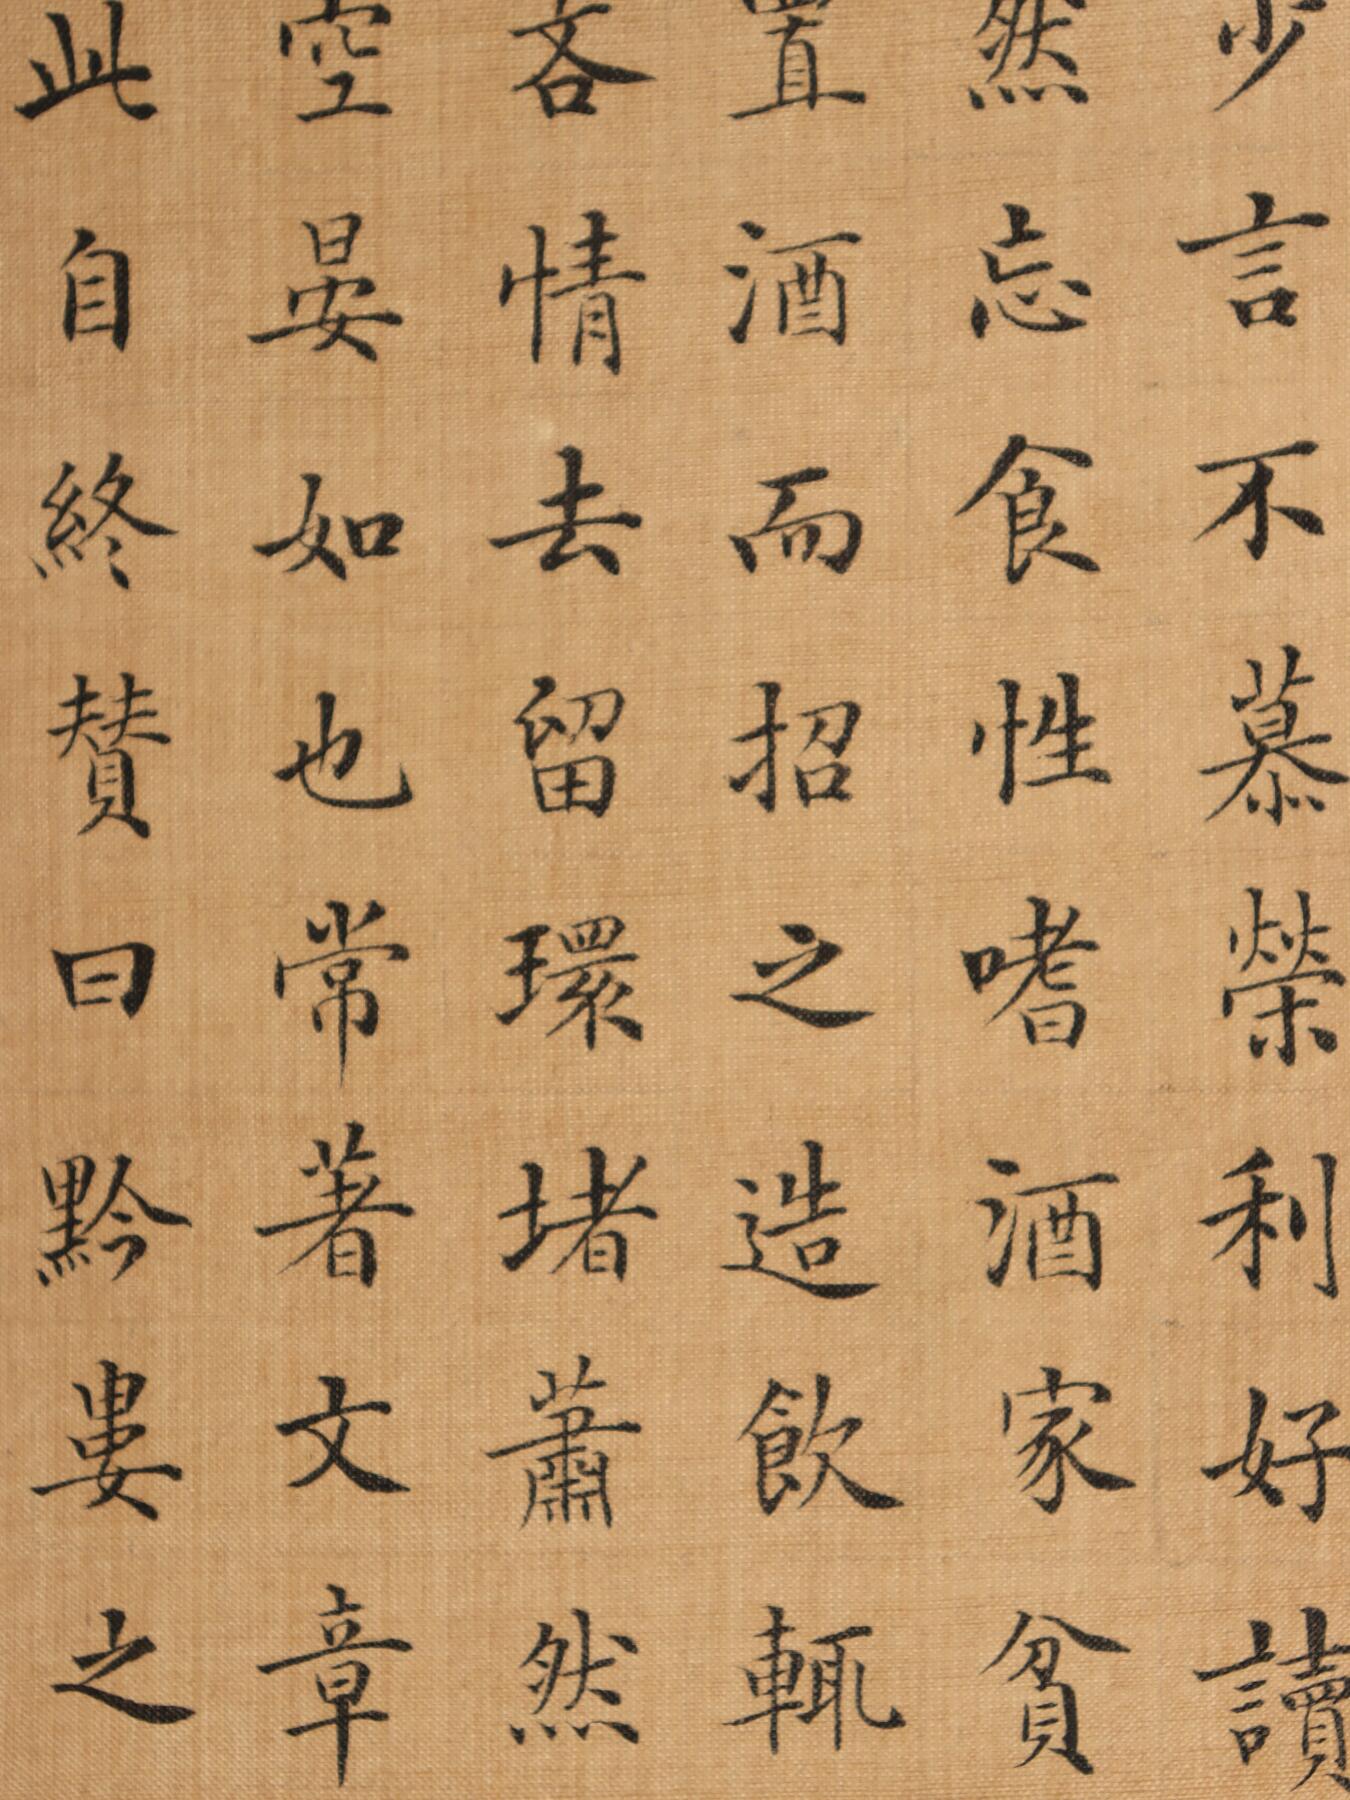 少言不慕榮利好讀
然忘食性嗜酒家貧
置酒而招之造飲輒
吝情去留環堵蕭然
空晏如也常著文章
此自終賛曰黔婁之